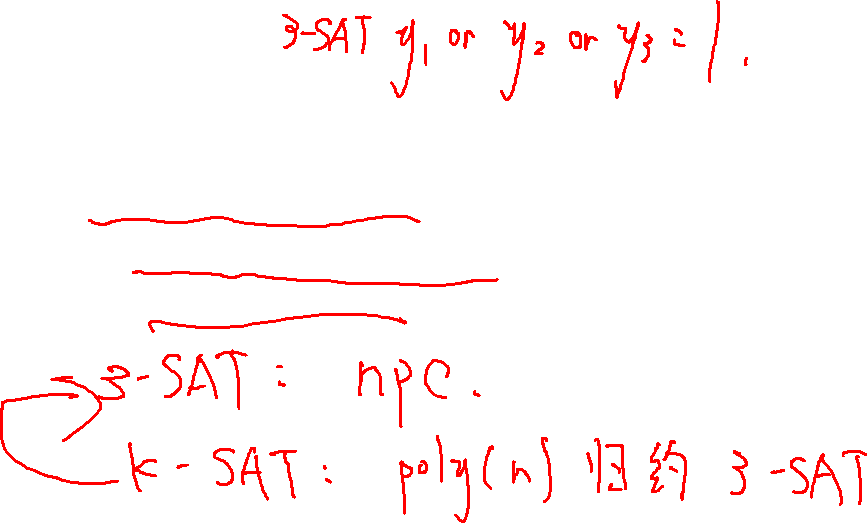 3-SAT y₁ or y₂ or y₃ = 1.
3-SAT: npc.
k-SAT: poly(n) 归约 3-SAT